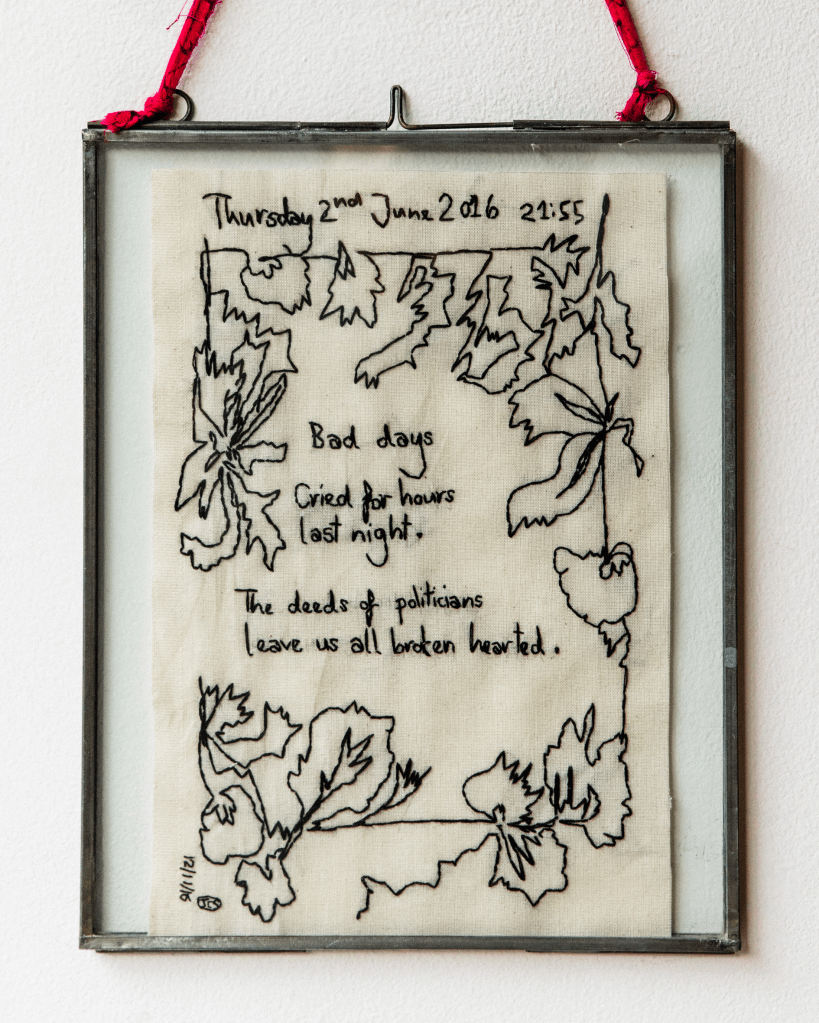 Thursday 2nd June 2016 21:55
Bad days
Cried for hours
last night.
The deeds of politicians
leave us all broken hearted.